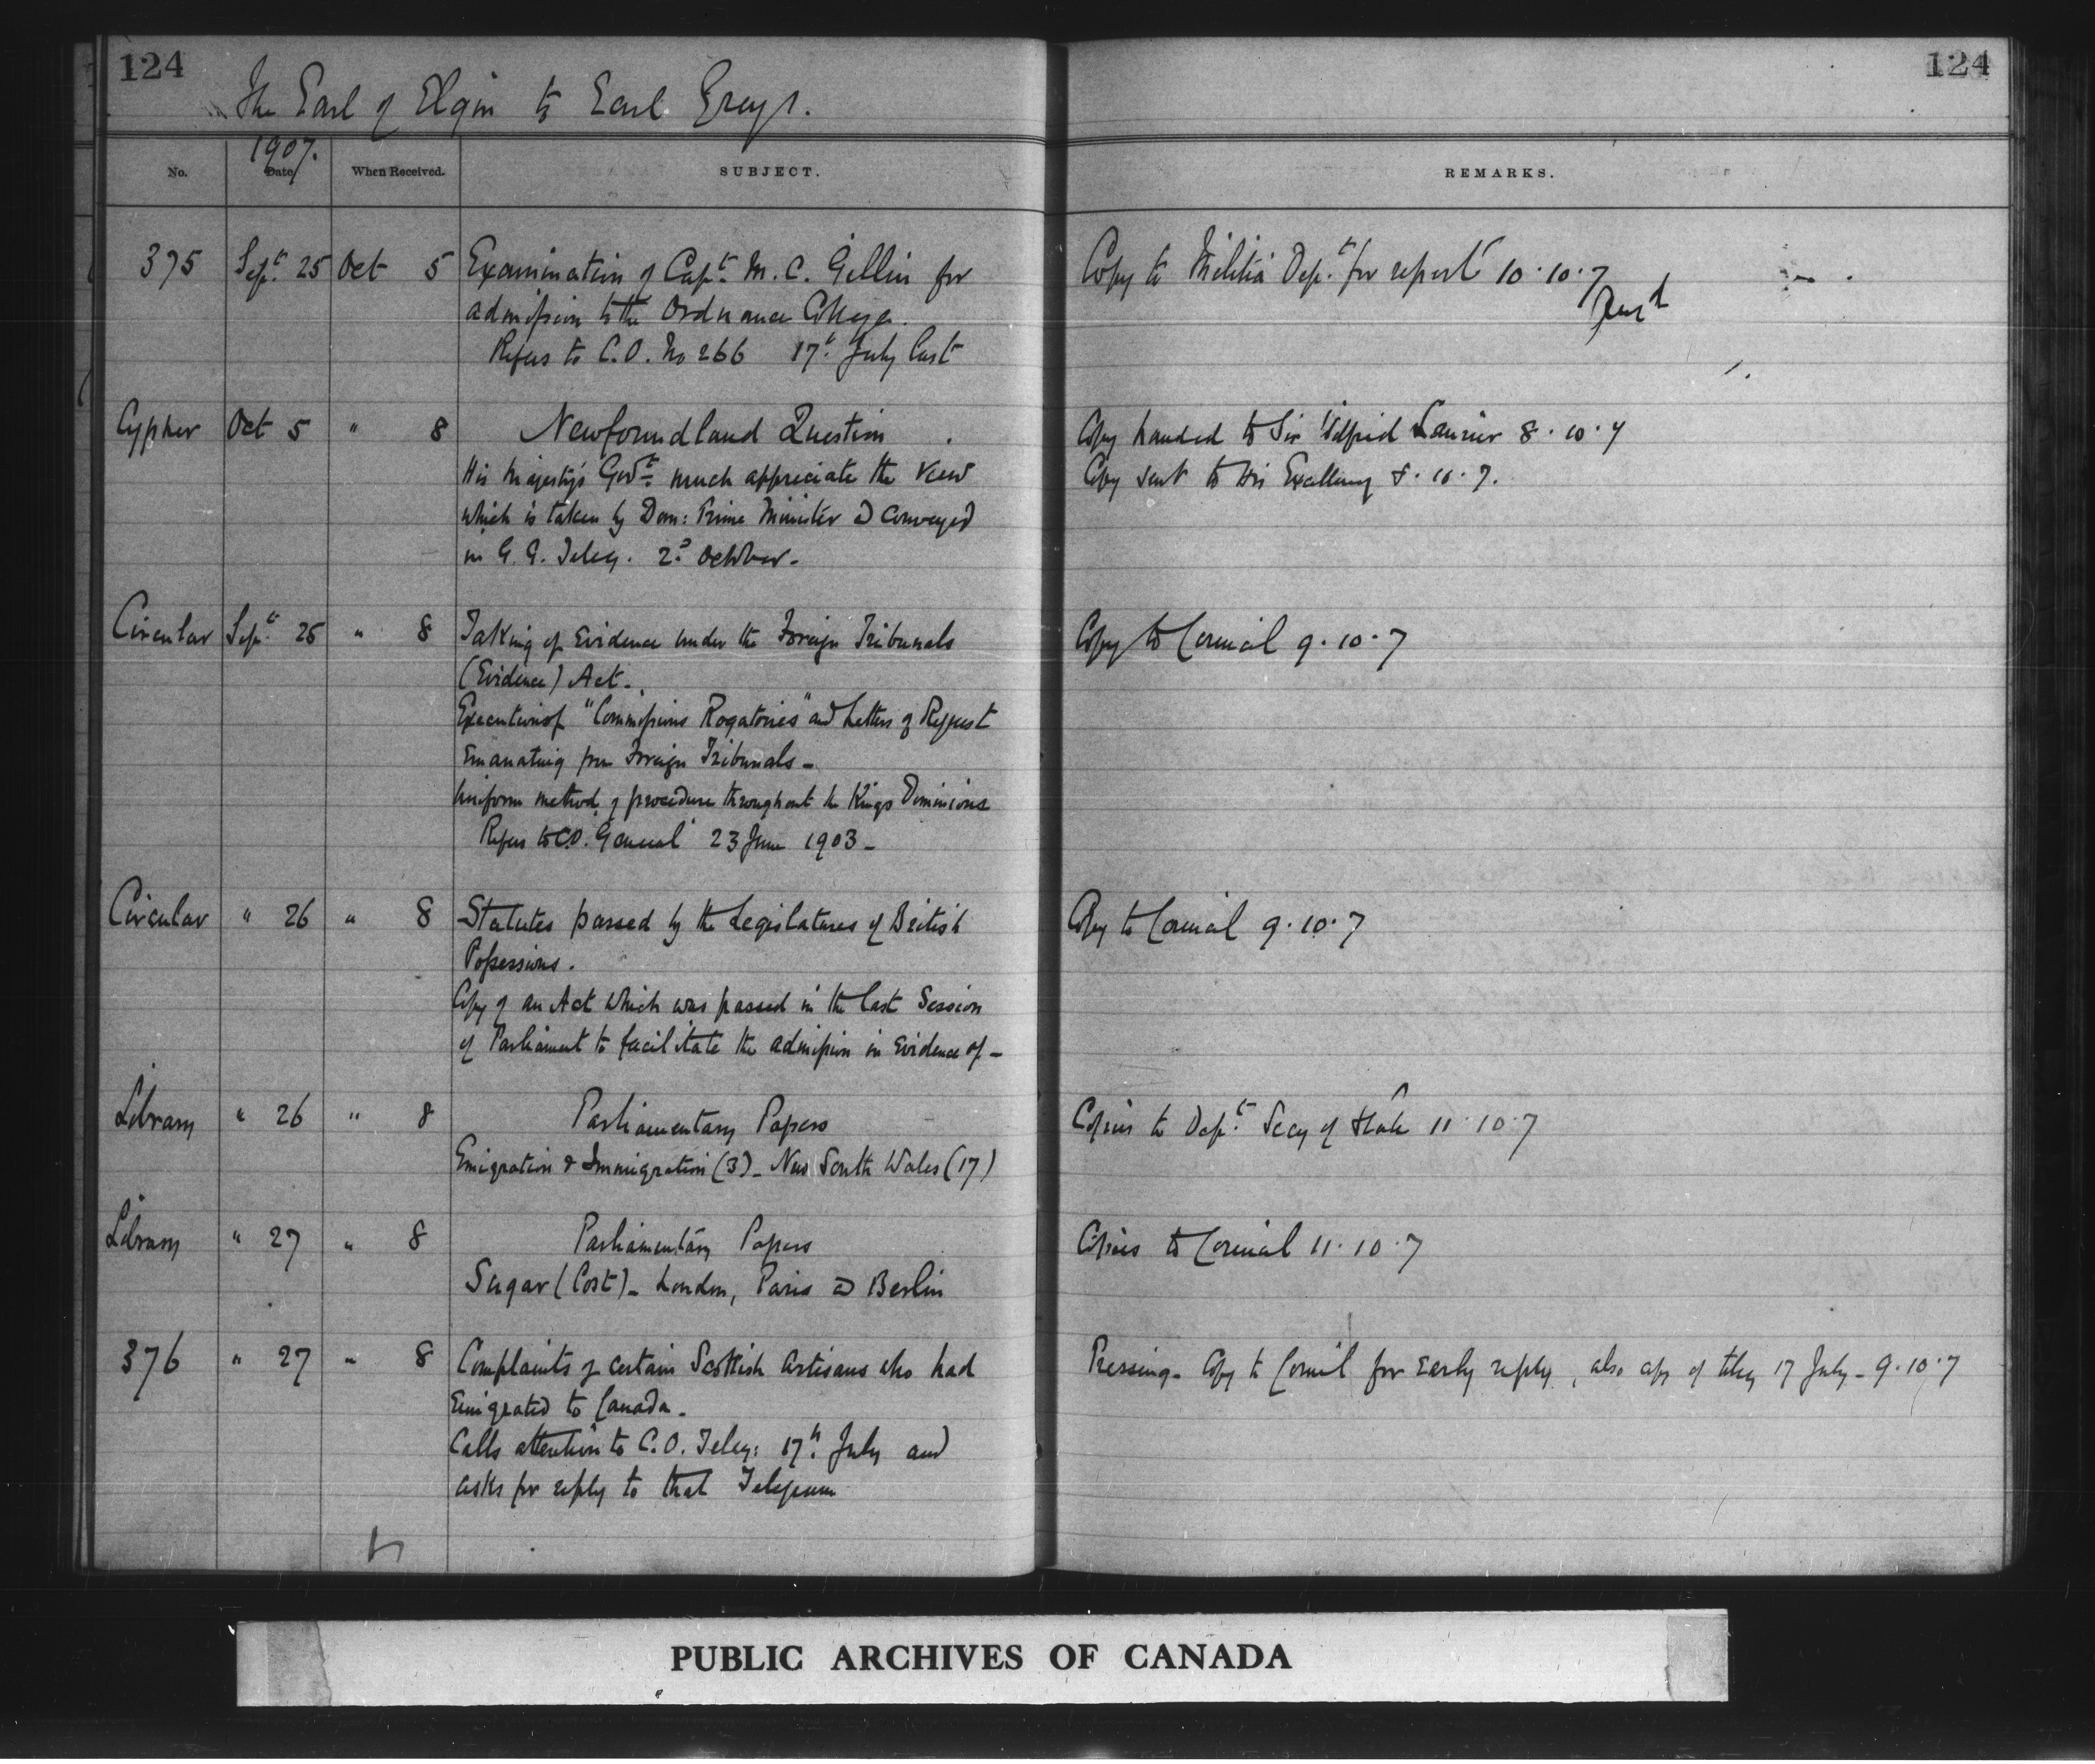 124
124
The Earl of Elgin to Earl Grey.
1907.
No. Date When Received. SUBJECT. REMARKS.
375 Sept. 25 Oct 5 Examination of Capt. M. C. Gillin for Copy to Militia Dept. for report 10.10.7
admission to the Ordnance College.
Refers to C.O. No 266 17th July last
Cypher Oct 5 " 8 Newfoundland Question. Copy handed to Sir Wilfrid Laurier 8.10.7
His Majesty's Govt. much appreciate the view Copy sent to His Excellency 8.10.7.
which is taken by Dom: Prime Minister & conveyed
in G.G. Teleg. 2d October.
Circular Sept. 25 " 8 Taking of Evidence under the Foreign Tribunals Copy to Council 9.10.7
(Evidence) Act.
Execution of "Commissions Rogatories" and Letters of Request
Emanating from Foreign Tribunals_
Uniform method of procedure throughout the Kings Dominions
Refers to C.O. General 23 June 1903_
Circular " 26 " 8 Statutes passed by the Legislatures of British Copy to Council 9.10.7
Possessions.
Copy of an Act which was passed in the last Session
of Parliament to facilitate the admission in Evidence of_
Library " 26 " 8 Parliamentary Papers Copies to Dept. Secy of State 11.10.7
Emigration & Immigration (3)_ New South Wales (17)
Library " 27 " 8 Parliamentary Papers Copies to Council 11.10.7
Sugar (Cost)_ London, Paris & Berlin
376 " 27 " 8 Complaints of certain Scottish Artisans who had Pressing_ Copy to Council for early reply, also copy of teleg 17 July_ 9.10.7
Emigrated to Canada_
Calls attention to C.O. Teleg: 17th July and
asks for reply to that Telegram
PUBLIC ARCHIVES OF CANADA